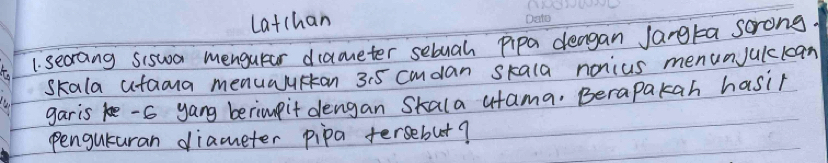 Latihan
Date
1. seorang siswa mengukur diameter sebuah pipa dengan Jangka sorong.
Skala utama menunjukkan 3.5 cm dan skala nonius menunjukkan
garis ke -6 yang berimpit dengan Skala utama. Berapakah hasil
pengukuran diameter pipa tersebut?